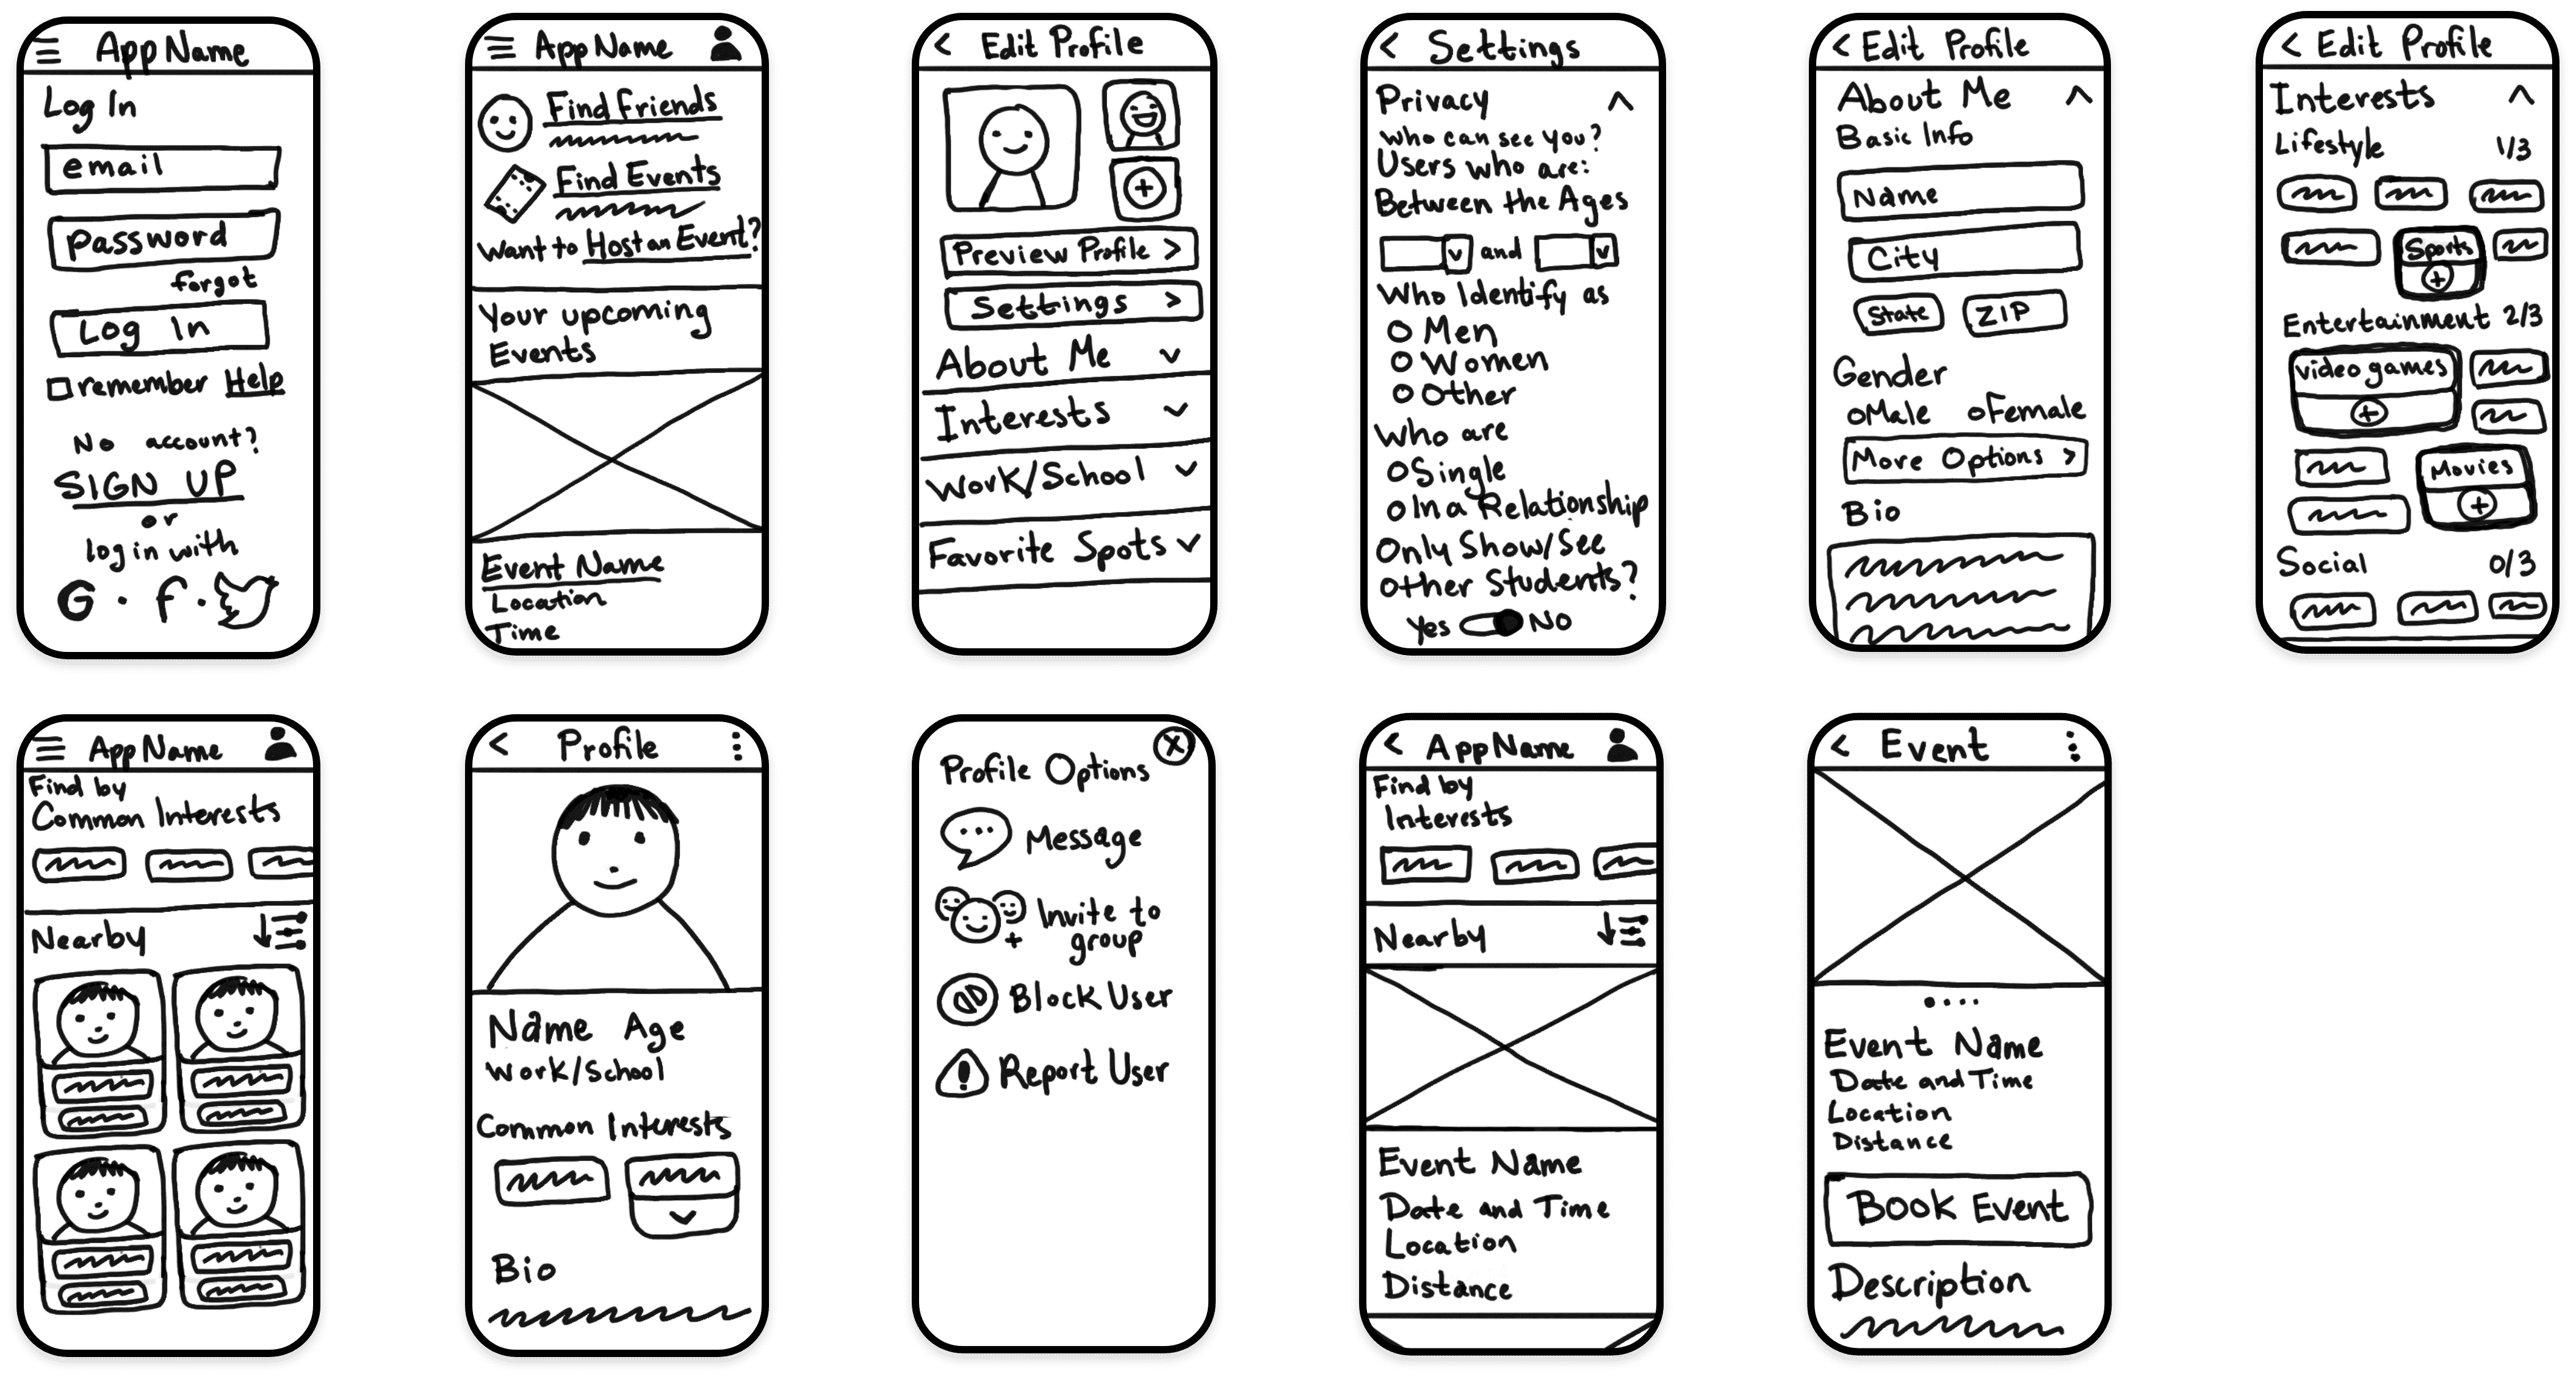 App Name
Log In
email
password
forgot
Log In
remember Help
No account?
SIGN UP
or
log in with
G · f ·
App Name
Find Friends
Find Events
Want to Host an Event?
Your upcoming
Events
Event Name
Location
Time
< Edit Profile
Preview Profile >
Settings >
About Me
Interests
Work/School
Favorite Spots
< Settings
Privacy
Who can see you?
Users who are:
Between the Ages
and
Who Identify as
Men
Women
Other
Who are
Single
In a Relationship
Only Show/See
other Students?
Yes NO
< Edit Profile
About Me
Basic Info
Name
City
State ZIP
Gender
Male Female
More Options >
Bio
< Edit Profile
Interests
Lifestyle 1/3
Sports
Entertainment 2/3
video games
Movies
Social 0/3
App Name
Find by
Common Interests
Nearby
< Profile
Name Age
Work/School
Common Interests
Bio
Profile Options
Message
Invite to
group
Block User
Report User
< App Name
Find by
Interests
Nearby
Event Name
Date and Time
Location
Distance
< Event
Event Name
Date and Time
Location
Distance
Book Event
Description